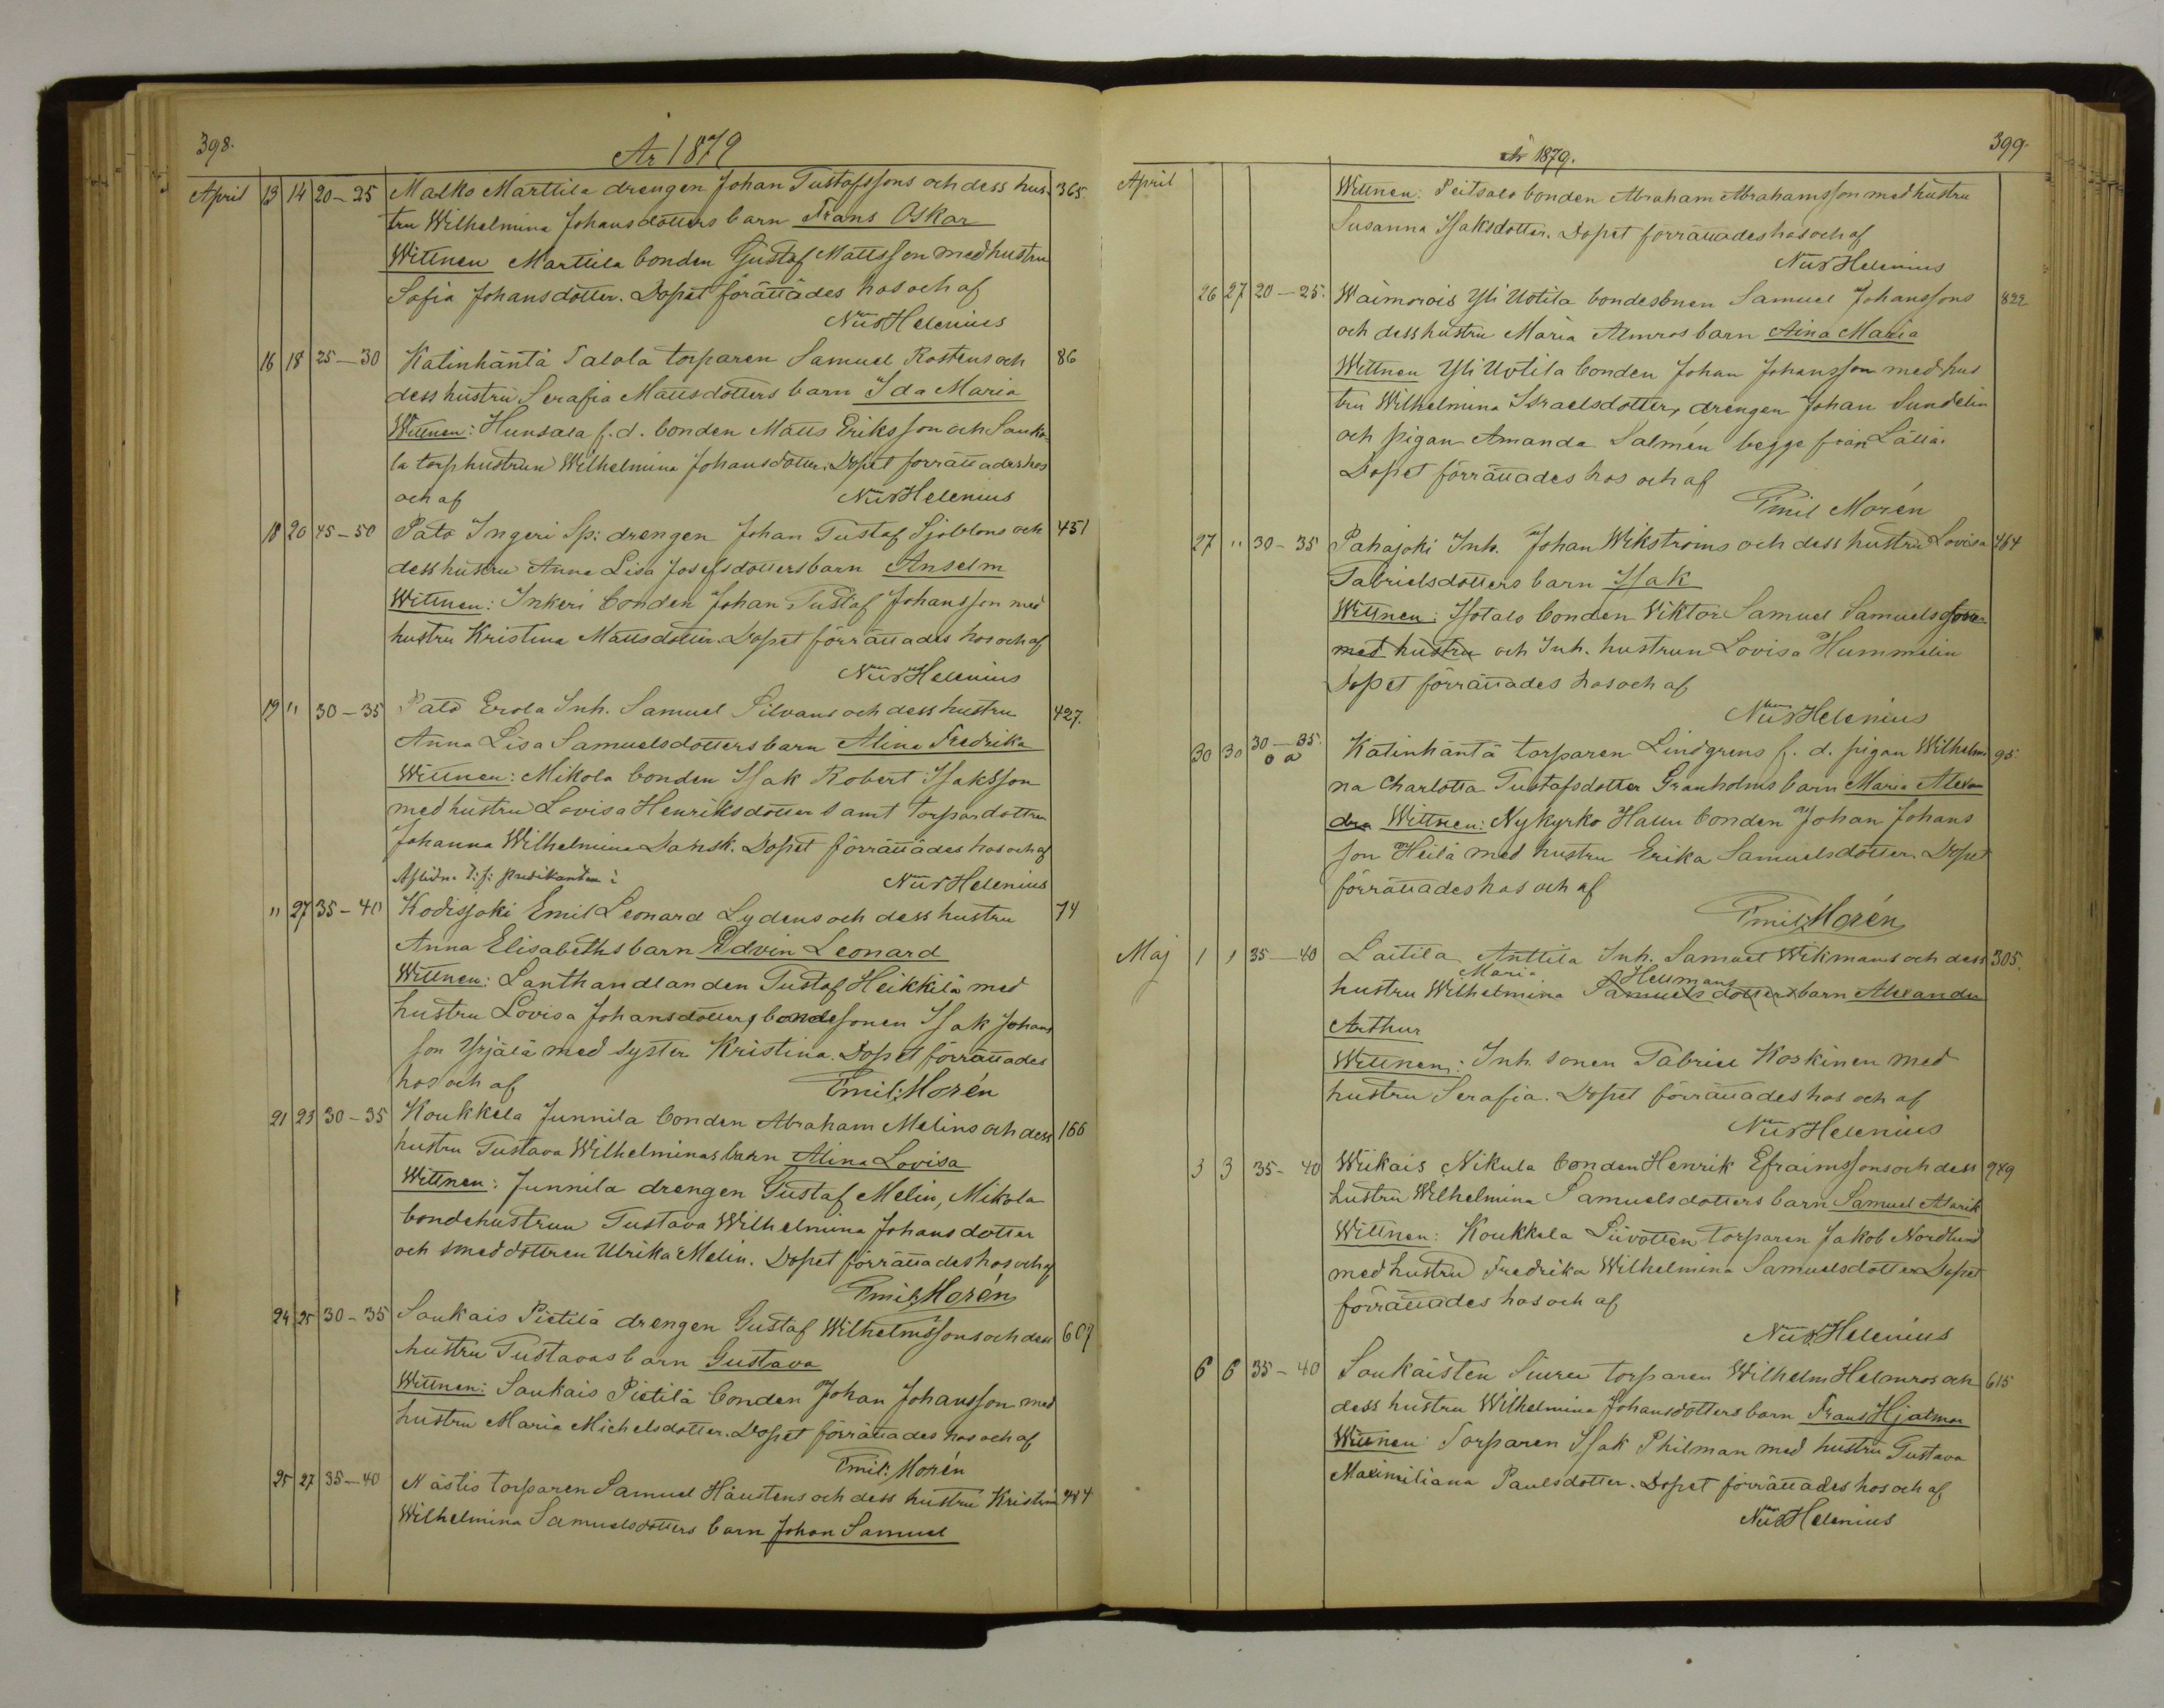 398.
År 1879
April 13 14 20-25 Malko Marttila drengen Johan Gustafssons och dess hus- 365.
tru Wilhelmina Johansdotters barn Frans Oskar
Wittnen Marttila bonden Gustaf Mattsson med hustru
Sofia Johansdotter. Dopet förrättades hos och af
Helenius
16 18 25-30 Katinhäntä Talola torparen Samuel Rostens och 86
dess hustru Serafia Mattsdotters barn Ida Maria
Wittnen: Hunsala f.d. bonden Matts Eriksson och Sauko-
la torphustrun Wilhelmina Johansdotter. Dopet förrättades hos
och af Helenius
18 20 45-50 Pato Ingeri Sp: drengen Johan Gustaf Sjöbloms och 451
dess hustru Anna Lisa Josefsdotters barn Anselm
Wittnen: Inkeri bonden Johan Gustaf Johansson med
hustru Kristina Mattsdotter. Dopet förrättades hos och af
Helenius
19 " 30-35 Pato Erola Inh. Samuel Silvans och dess hustru 427.
Anna Lisa Samuelsdotters barn Alina Fredrika
Wittnen: Mikola bonden Isak Robert Isaksson
med hustru Lovisa Henriksdotter samt torpardottren
Johanna Wilhelmina Dansk. Dopet förrättades hos och af
Helenius
" 27 35-40 Kodisjoki Emil Leonard Lydens och dess hustru 74
Anna Elisabeths barn Edvin Leonard
Wittnen: Lanthandlanden Gustaf Heikkilä med
hustru Lovisa Johansdotter, bondesonen Isak Johans
son Yrjälä med syster Kristina. Dopet förrättades
hos och af Emil: Morén
21 23 30-35 Koukkela Junnila bonden Abraham Melins och dess 166
hustru Gustava Wilhelminas barn Alina Lovisa
Wittnen: Junnila drengen Gustaf Melin, Mikola
bondehustrun Gustava Wilhelmina Johansdotter
och smeddottren Ulrika Melin. Dopet förrättades hos och af
Emil: Morén
24 25 30-35 Soukais Pietilä drengen Gustaf Wilhelmssons och dess 607
hustru Gustavas barn Gustava
Wittnen: Soukais Pietilä bonden Johan Johansson med
hustru Maria Michelsdotter. Dopet förrättades hos och af
Emil: Morén
25 27 35-40 Nästis torparen Samuel Häustens och dess hustru Kristina
Wilhelmina Samuelsdotters barn Johan Samuel
399.
År 1879.
April Wittnen: Peitsalo bonden Abraham Abrahamsson med hustru
Susanna Isaksdotter. Dopet förrättades hos och af
Helenius
26 27 20-25. Waimorois Yli Uotila bondesonen Samuel Johanssons 822
och dess hustru Maria Almros barn Aina Maria
Wittnen Yli Uotila bonden Johan Johansson med hus
tru Wilhelmina Israelsdotter, drengen Johan Sundelin
och pigan Amanda Salmén begge från Lättä.
Dopet förrättades hos och af
Emil Morén
27 " 30-35 Pahajoki Inh. Johan Wikströms och dess hustru Lovisa 464
Gabrielsdotters barn Isak
Wittnen: Isotalo bonden Viktor Samuel Samuelsson
med hustru och Inh. hustrun Lovisa Hummelin
Dopet förrättades hos och af
Helenius
30 30 30-35. Katinhäntä torparen Lindgrens f. d. pigan Wilhelmi 95.
o ä
na Charlotta Gustafsdotter Granholms barn Maria Alexan
dra Wittnen: Nykyrko Hallu bonden Johan Johans
son Heilä med hustru Erika Samuelsdotter. Dopet
förrättades hos och af
Emil: Morén
Maj 1 1 35-40 Laitila Anttila Inh. Samuel Wikmans och dess 305.
Maria Hellmans
hustru Wilhelmina Samuelsdotters barn Alexander
Arthur
Wittnen: Inh. sonen Gabriel Koskinen med
hustru Serafia. Dopet förrättades hos och af
Helenius
3 3 35-40 Wiikais Nikula bonden Henrik Efraimssons och dess 949
hustru Wilhelmina Samuelsdotters barn Samuel Alarik
Wittnen: Koukkela torparen Jakob Nordlund
med hustru Fredrika Wilhelmina Samuelsdotter Dopet
förrättades hos och af
Helenius
6 6 35-40 Soukaisten torparen Wilhelm Helmros och 615
dess hustru Wilhelmina Johansdotters barn Frans Hjalmar
Wittnen Torparen Isak Philman med hustru Gustava
Maximiliana Paulsdotter. Dopet förrättades hos och af
Helenius